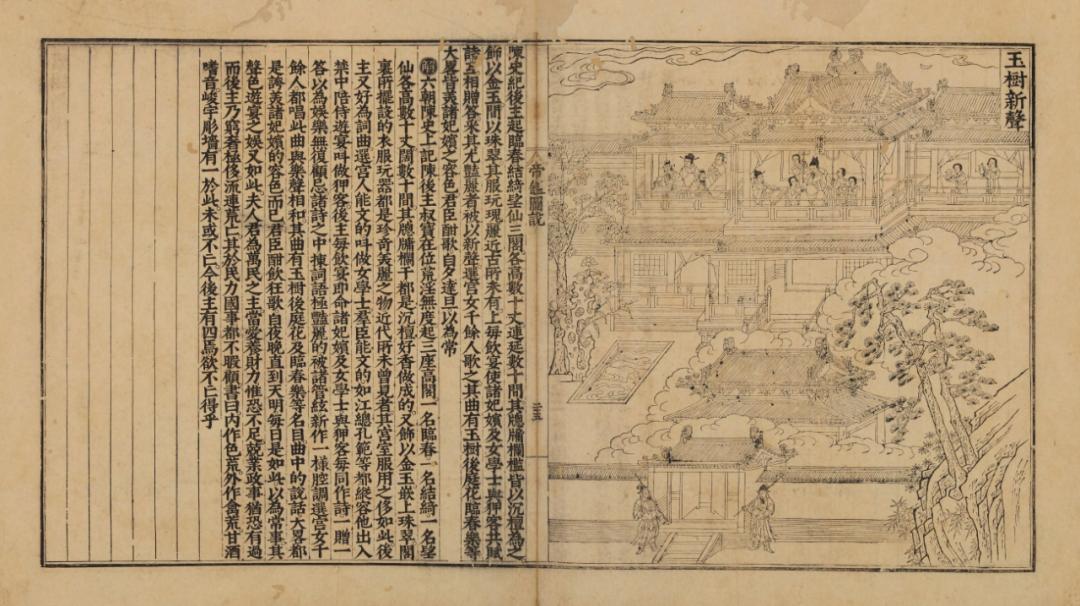 玉樹新聲
陳史紀後主起臨春結綺望仙三閣各高數十丈連延數十間其牕牖欄檻皆以沉檀為之
飾以金玉間以珠翠其服玩瑰麗近古所未有上每飲宴使諸妃嬪及女學士與狎客共賦
詩互相贈答采其尤豔麗者被以新聲選宮女千餘人歌之其曲有玉樹後庭花臨春樂等
大畧皆美諸妃嬪之容色君臣酣歌自夕達旦以為常
帝鑑圖說
二五
解六朝陳史上記陳後主叔寶在位荒淫無度起三座高閣一名臨春一名結綺一名望
仙各高數十丈闊數十間其牕牖欄干都是沉檀好香做成的又飾以金玉嵌上珠翠閣
裏所擺設的衣服玩器都是珍奇美麗之物近代所未曾見者其宮室服用之侈如此後
主又好為詞曲選宮人能文的呌做女學士羣臣能文的如江總孔範等都縱容他出入
禁中陪侍遊宴呌做狎客後主每飲宴即命諸妃嬪及女學士與狎客每同作詩一贈一
答以為娛樂無復顧忌諸詩之中揀詞語極豔麗的被諸管絃新作一様腔調選宮女千
餘人都唱此曲與樂聲相和其曲有玉樹後庭花及臨春樂等名目曲中的說話大畧都
是誇美諸妃嬪的容色而已君臣酣飲狂歌自夜晚直到天明每日是如此以為常事其
聲色遊宴之娛又如此夫人君為萬民之主當愛養財力惟恐不足兢業政事猶恐有過
而後主乃窮奢極侈流連荒亡其於民力國事都不暇顧書曰内作色荒外作禽荒甘酒
嗜音峻宇彫墻有一於此未或不亡今後主有四焉欲不亡得乎